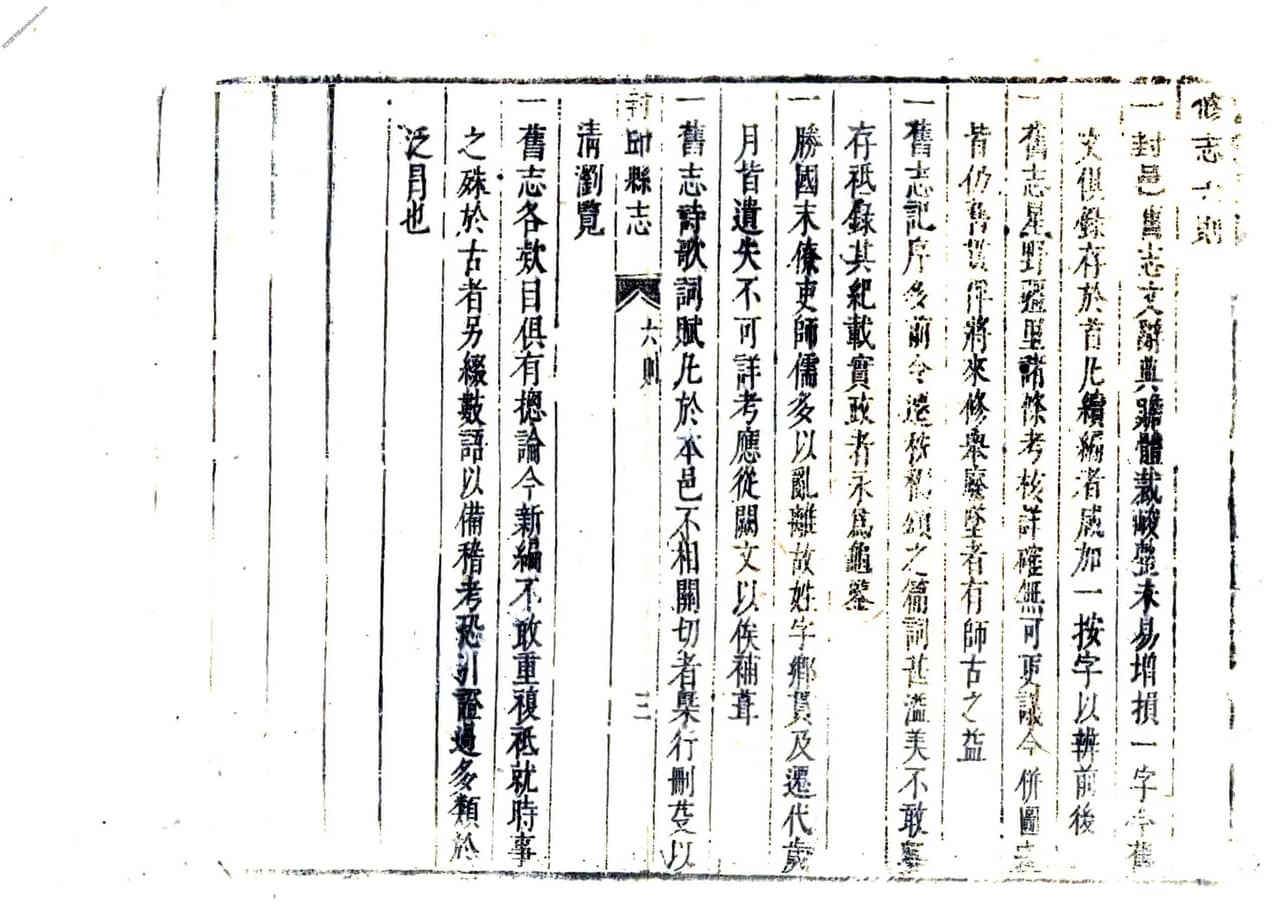 修志六則
一封邑舊志文辭典雅體裁峻整未易增損一字今舊
文俱錄存於首凡續編者咸加一按字以辨前後
一舊志星野疆里諸條考核詳確無可更議今併圖
皆仍舊貫俾將來修舉廢墜者有師古之益
一舊志記序多前令遷秩之篇詞甚溢美不敢槩
存祗錄其紀載實政者永爲龜鑒
一勝國末僚吏師儒多以亂離故姓字鄉貫及遷代歲
月皆遺失不可詳考應從闕文以俟補葺
一舊志詩歌詞賦凡於本邑不相關切者槩行刪芟以
封邱縣志 六則 三
清瀏覽
一舊志各欵目俱有摠論今新編不敢重複祗就時事
之殊於古者另綴數語以備稽考恐引證過多類於
泛冐也